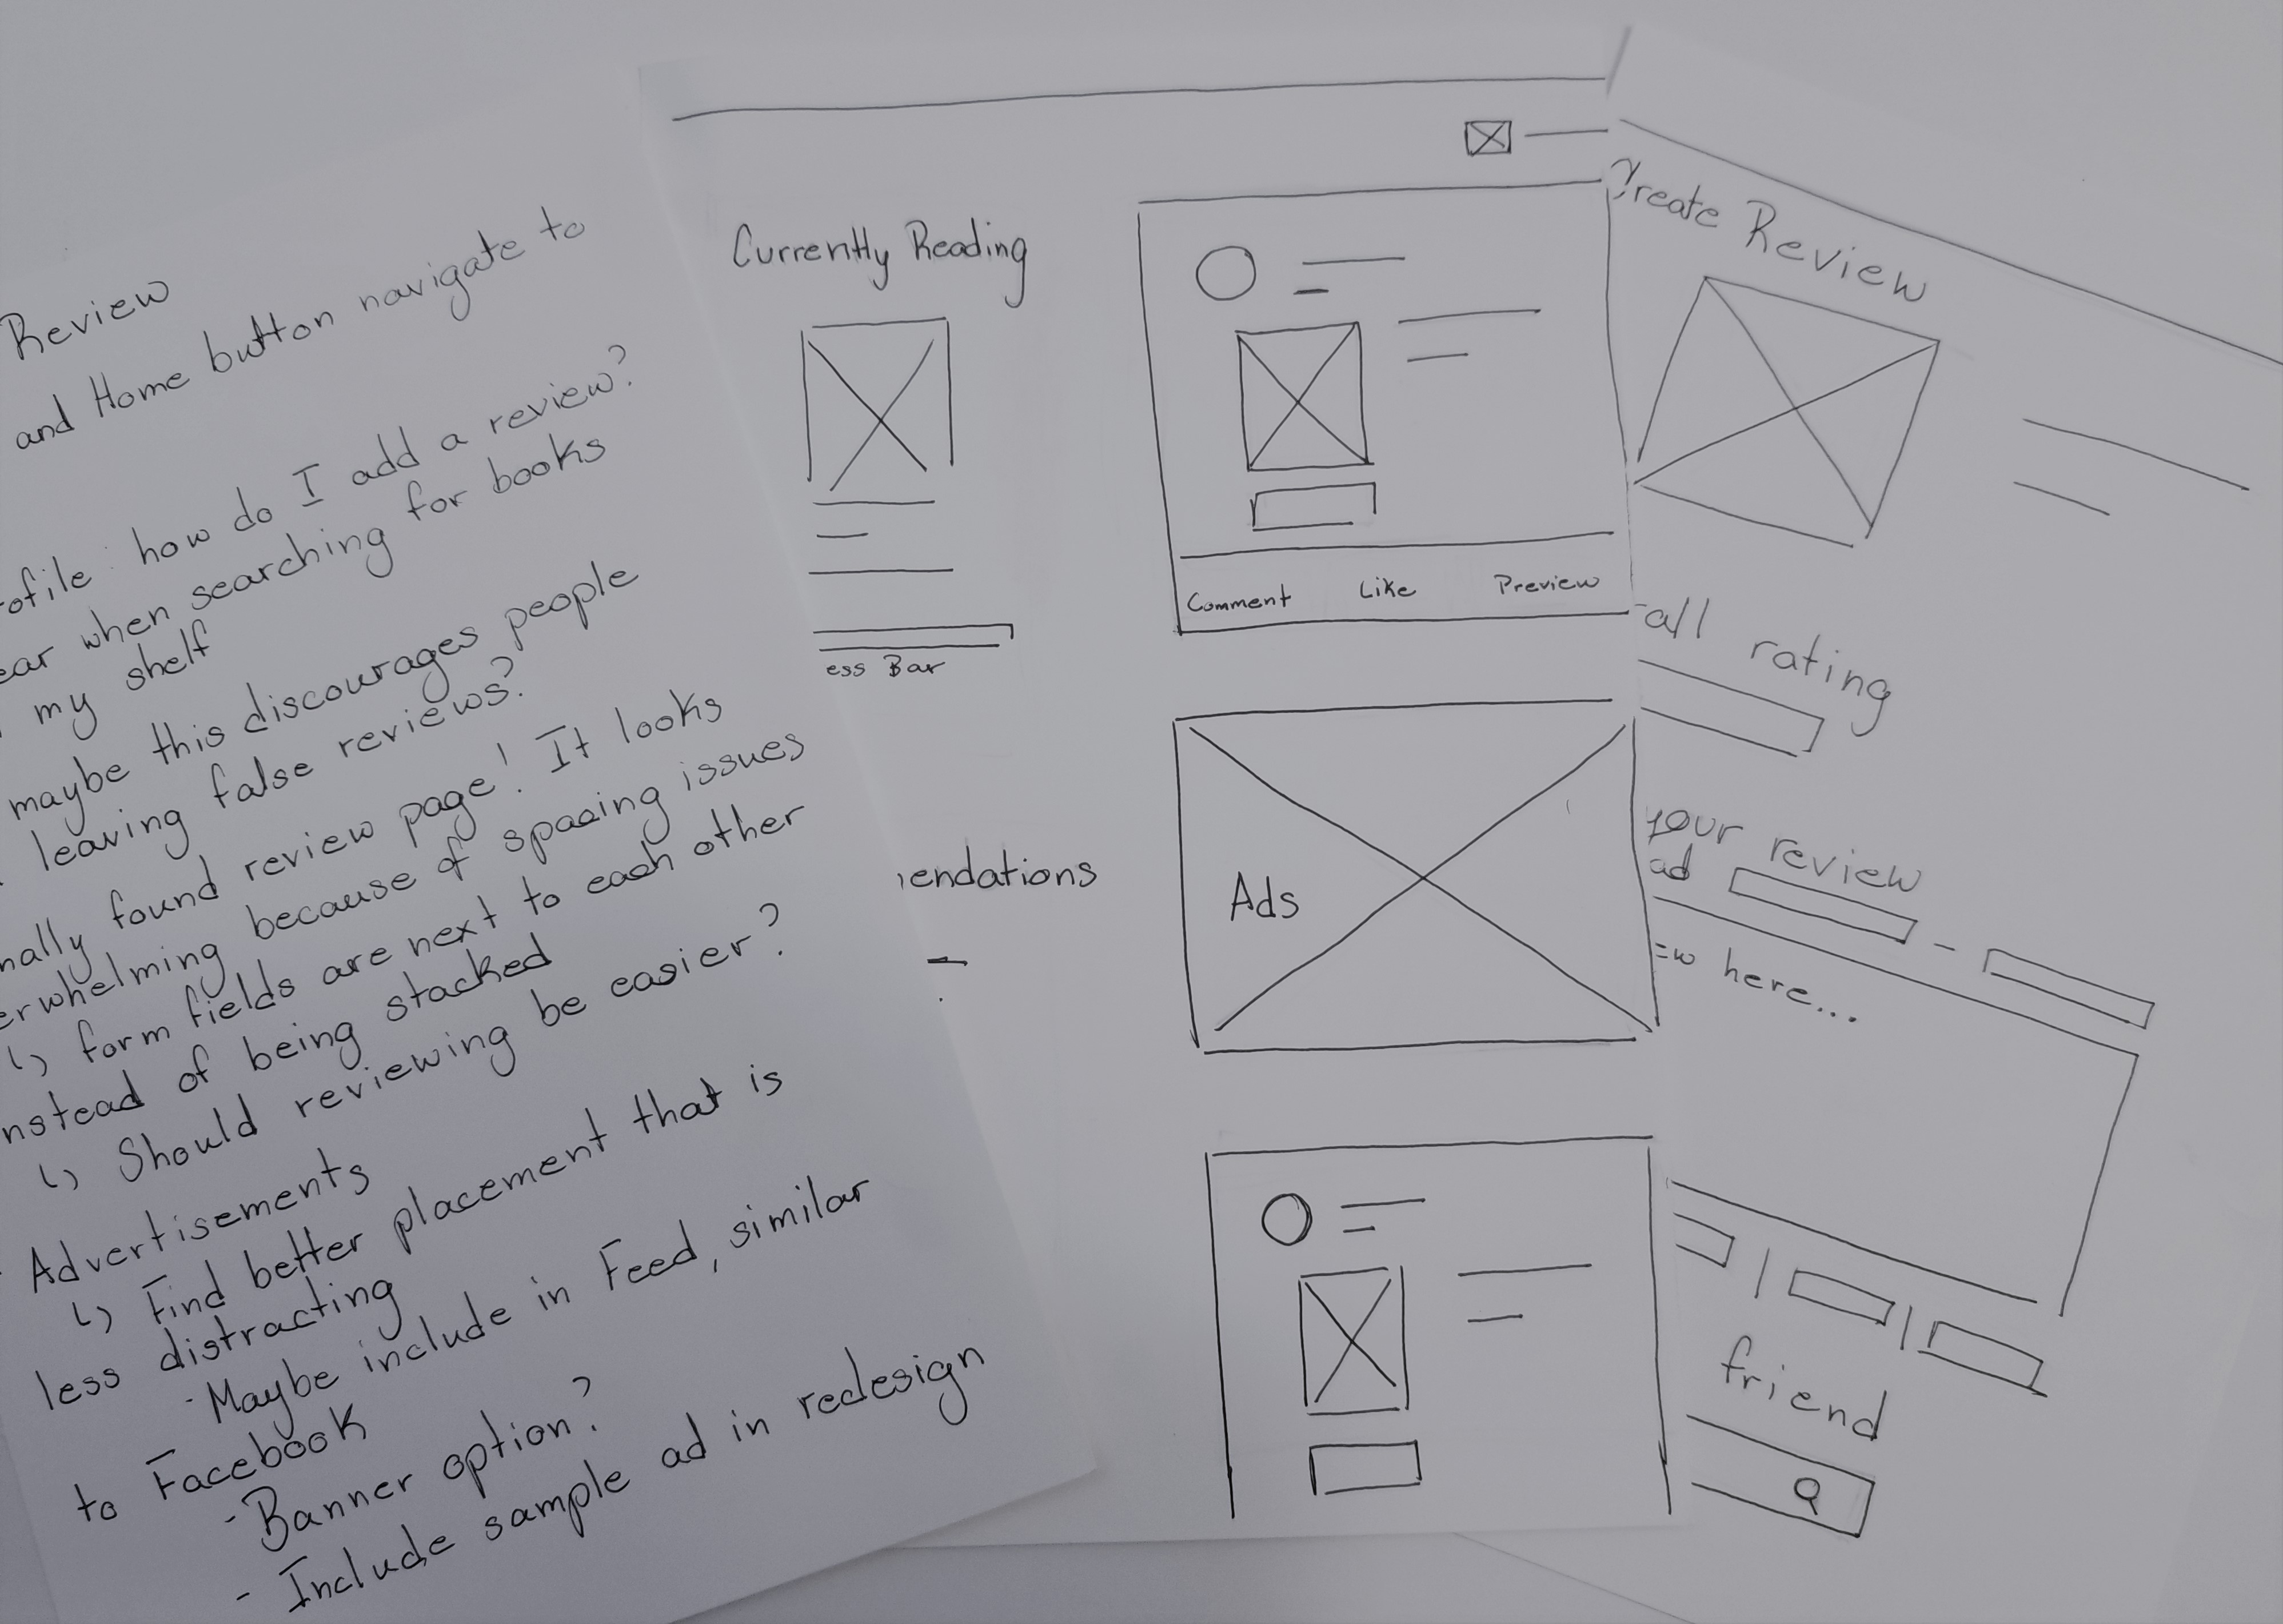 Review
and Home button navigate to
ofile: how do I add a review?
ear when searching for books
my shelf
maybe this discourages people
leaving false reviews?
nally found review page! It looks
erwhelming because of spacing issues
form fields are next to each other
nstead of being stacked
Should reviewing be easier?
Advertisements
Find better placement that is
less distracting
- Maybe include in Feed, similar
to Facebook
- Banner option?
- Include sample ad in redesign
Currently Reading
ess Bar
endations
Comment Like Preview
Ads
Create Review
all rating
your review
ad
ew here...
friend